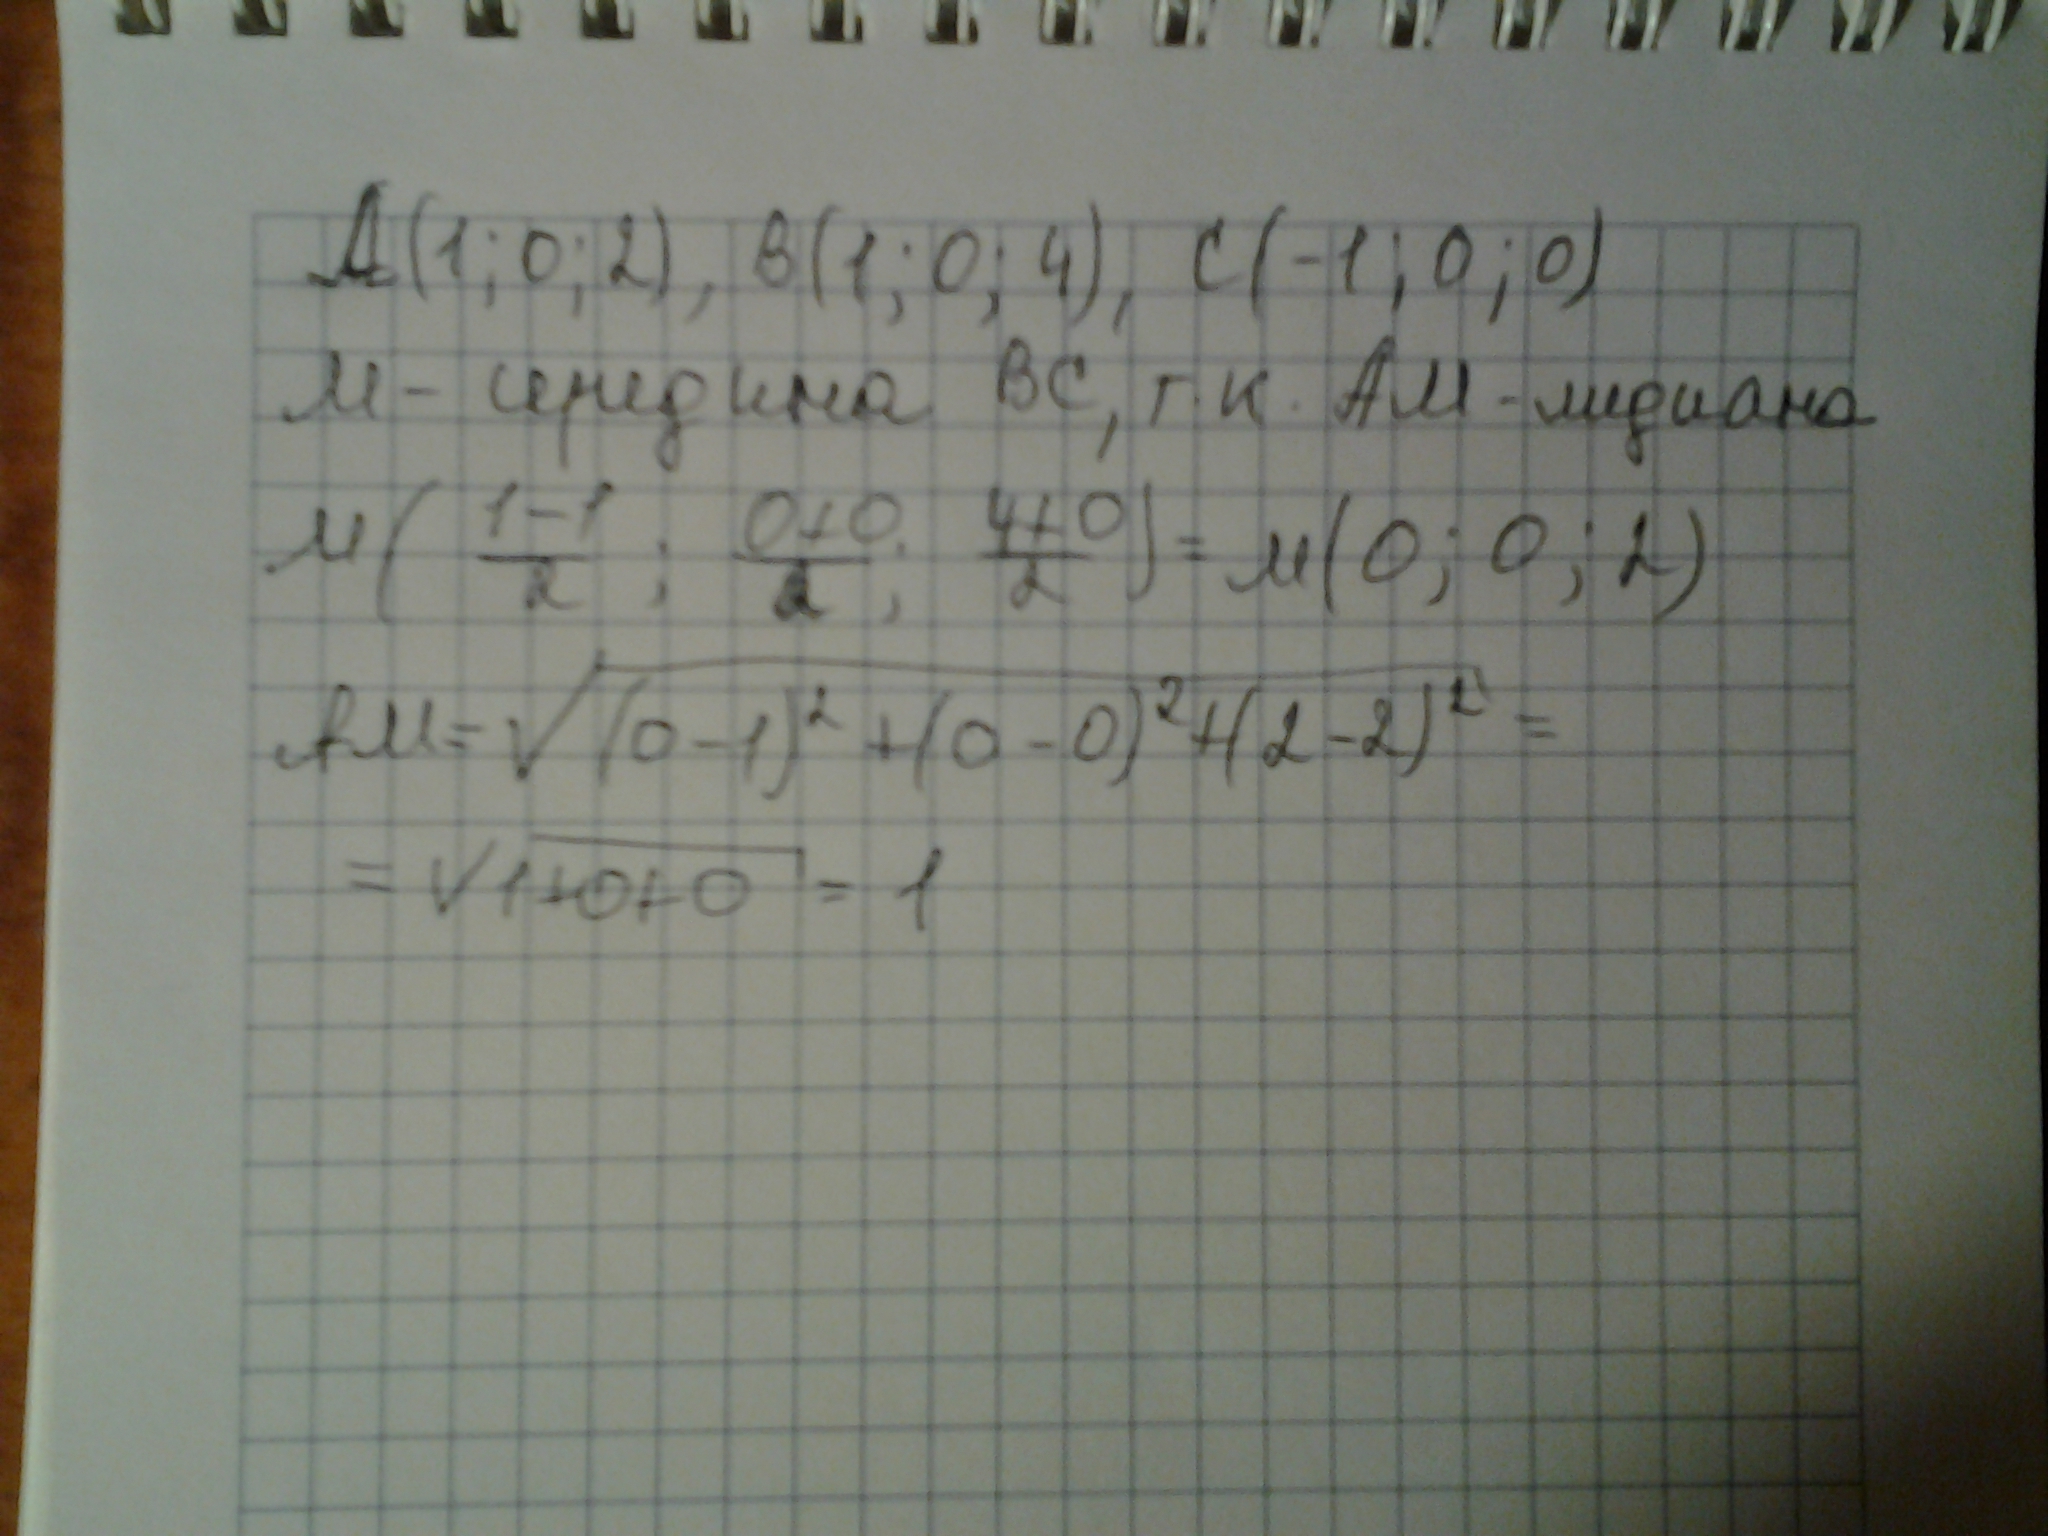 A(1;0;2), B(1;0;4), C(-1;0;0)
М - середина ВС, т.к. АМ - медиана
M( (1-1)/2 ; (0+0)/2 ; (4+0)/2 ) = M(0;0;2)
AM = √((0-1)² + (0-0)² + (2-2)²) =
= √(1+0+0) = 1